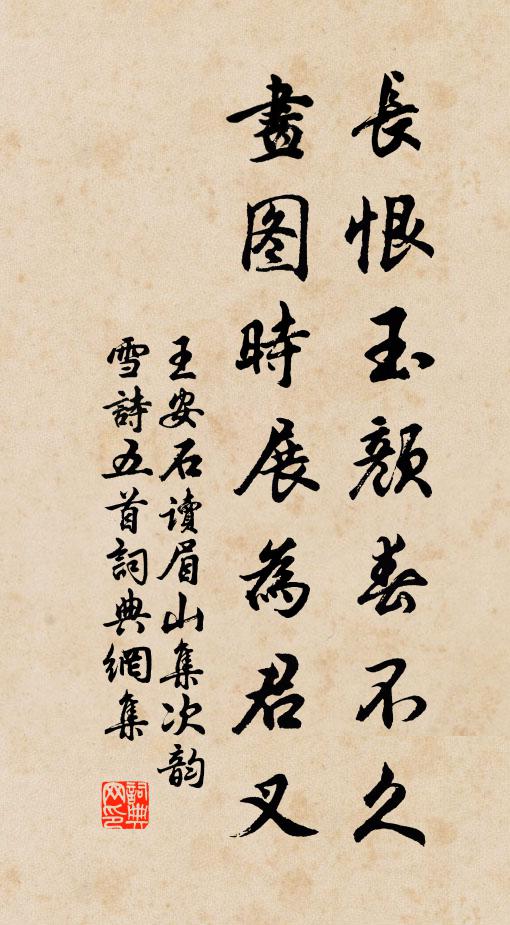 長恨玉顏春不久
畫图時展為君叉
王安石讀眉山集次韵
雪詩五首詞典網集
詞典
网印